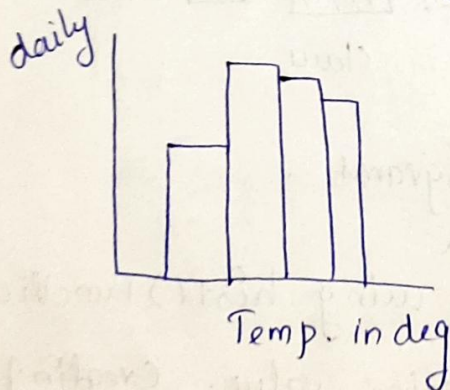 daily
Temp. in deg